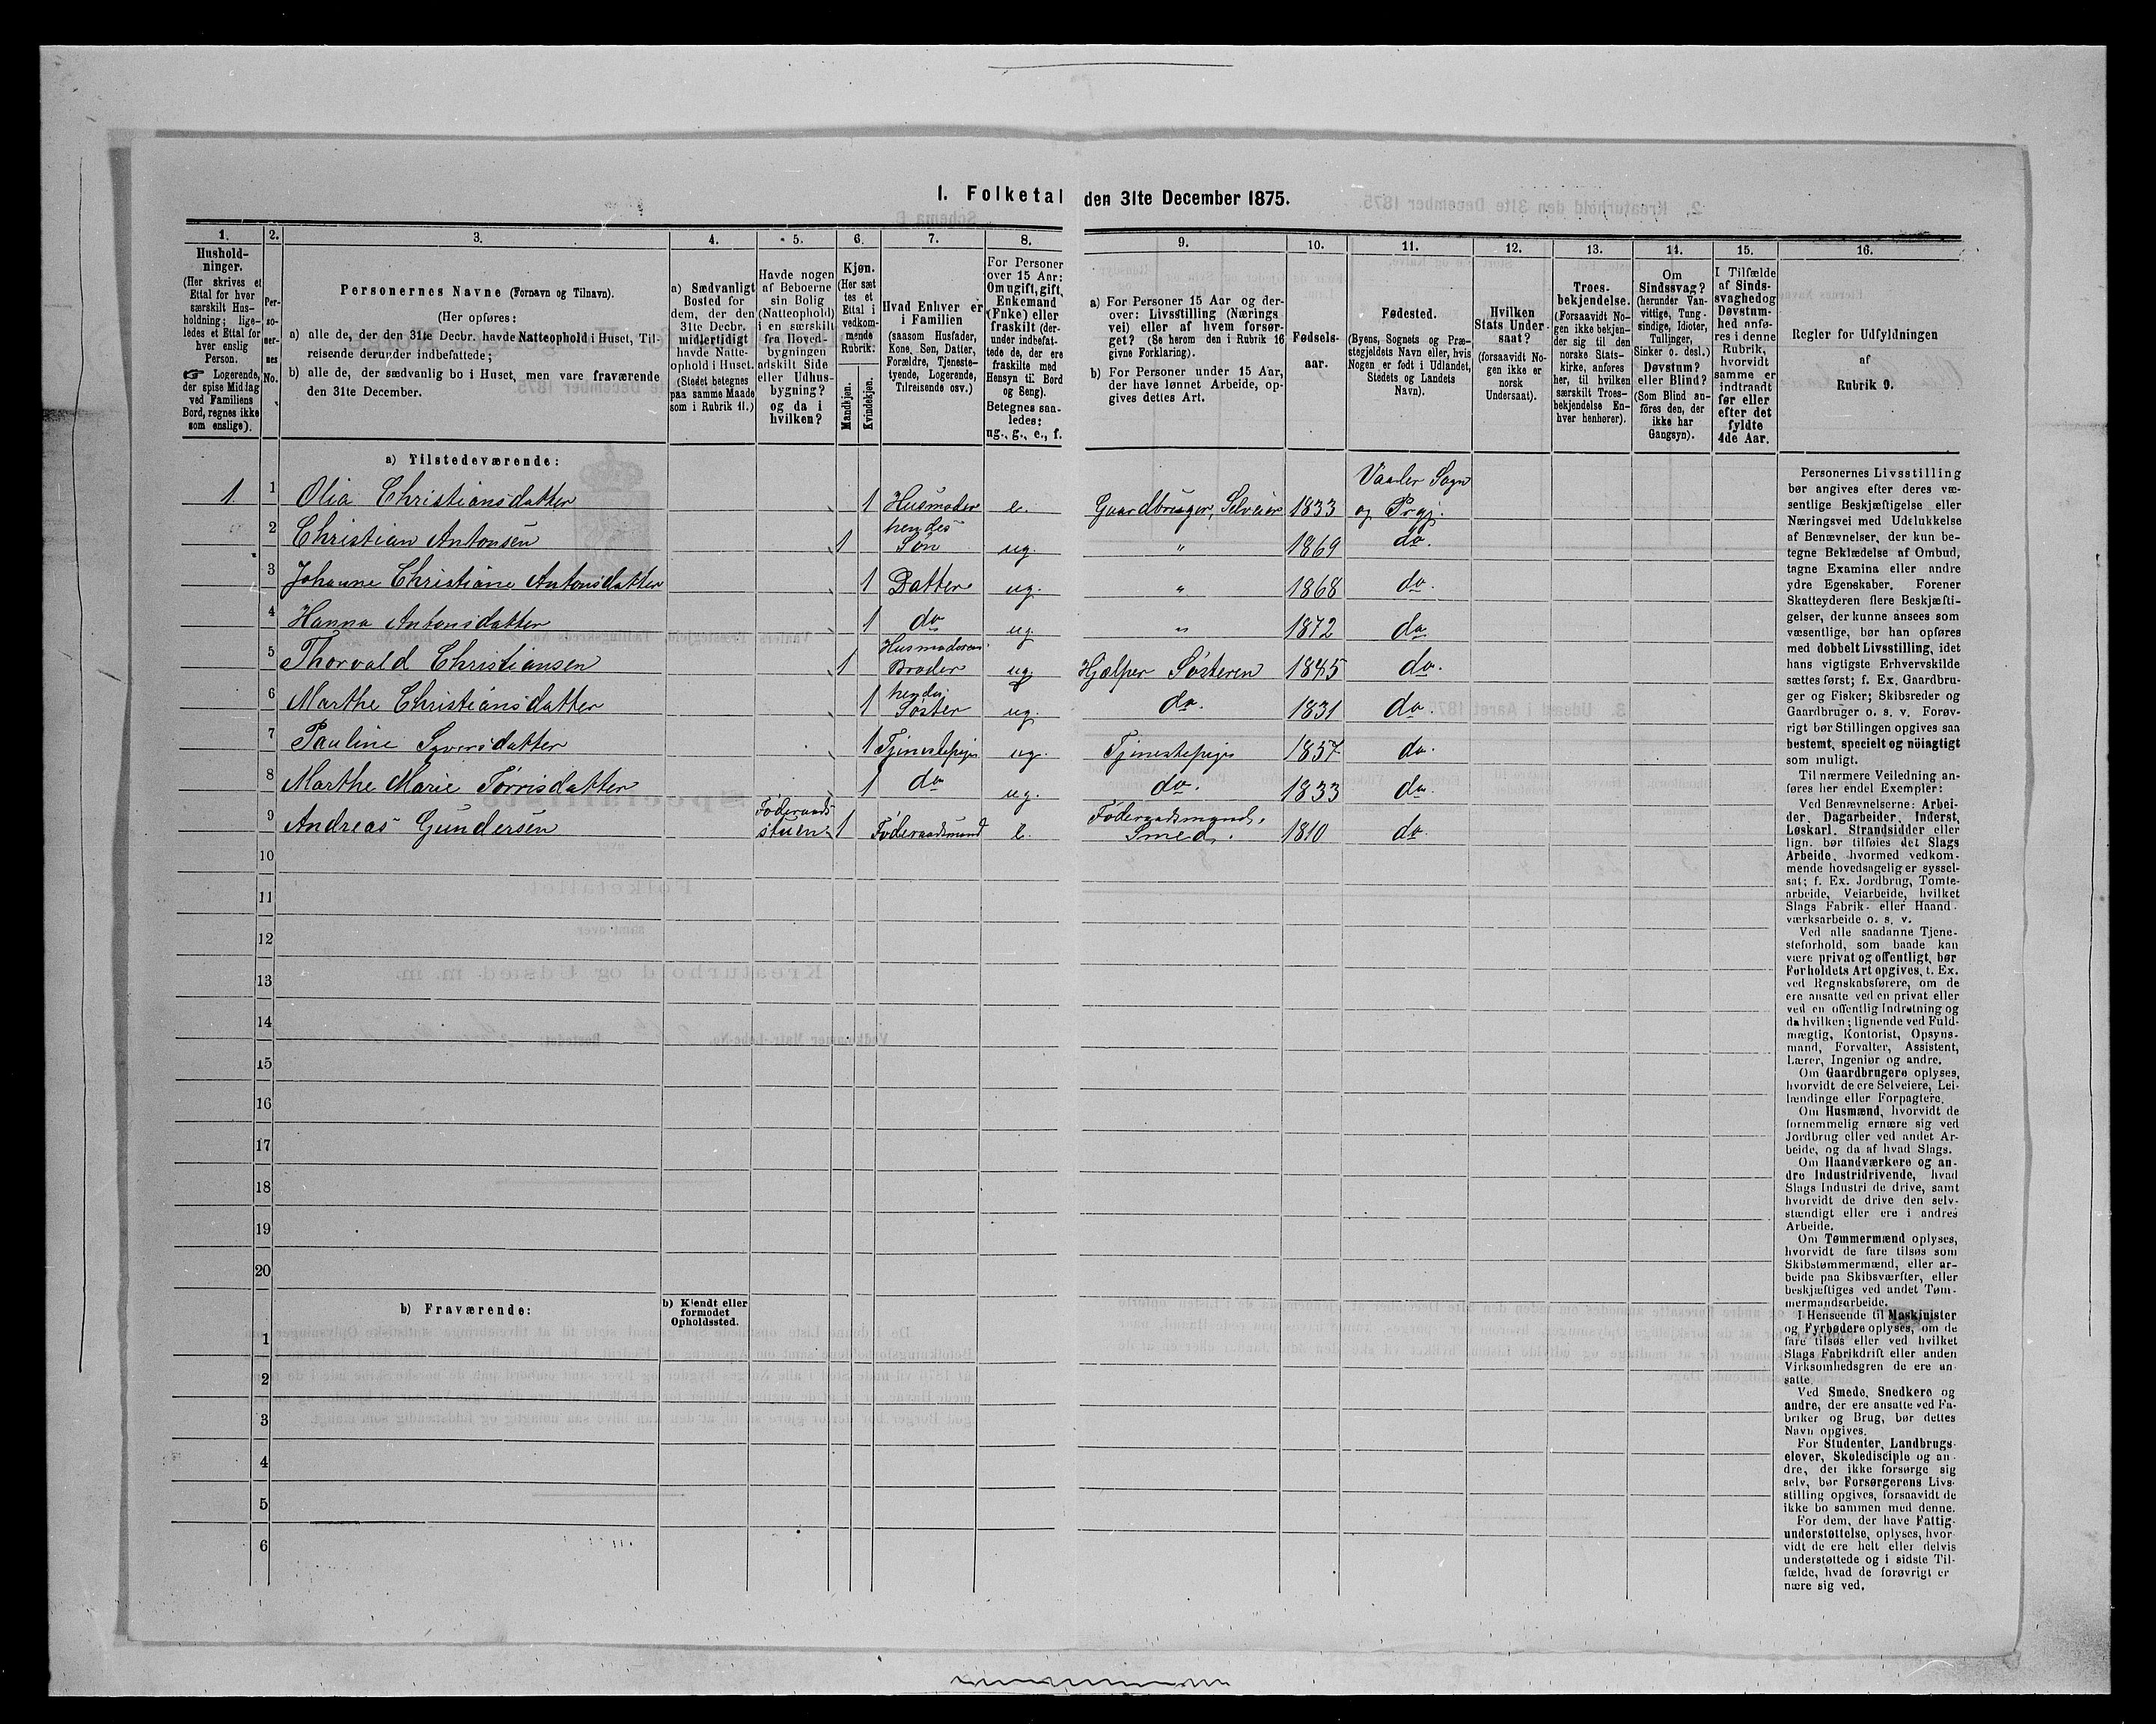 1. Folketal den 31te December 1875.
1. 2. 3. 4. 5. 6. 7. 8. 9. 10. 11. 12. 13. 14. 15. 16.
Hushold-
ninger.
(Her skrives et
Ettal for hver
særskilt Hus-
holdning; lige-
ledes et Ettal for
hver enslig
Person.
☞ Logerende,
der spise Middag
ved Familiens
Bord, regnes ikke
som enslige).
Per-
so-
ner-
nes
No.
Personernes Navne (Fornavn og Tilnavn).
(Her opføres:
a) alle de, der den 31te Decbr. havde Natteophold i Huset, Til-
reisende derunder indbefattede;
b) alle de, der sædvanlig bo i Huset, men vare fraværende
den 31te December.
a) Sædvanligt
Bosted for
dem, der den
31te Decbr.
midlertidigt
havde Natte-
ophold i Huset.
(Stedet betegnes
paa samme Maade
som i Rubrik 11.)
Havde nogen
af Beboerne
sin Bolig
(Natteophold)
i en særskilt
fra Hoved-
bygningen
adskilt Side
eller Udhus-
bygning?
og da i
hvilken?
Kjøn.
(Her sæt
tes et
Ettal i
vedkom-
mende
Rubrik.
Mandkjøn.
Kvindekjøn.
Hvad Enhver er
i Familien
(saasom Husfader,
Kone, Søn, Datter,
Forældre, Tjeneste-
tyende, Logerende,
Tilreisende osv.)
For Personer
over 15 Aar:
Om ugift, gift,
Enkemand
(Enke) eller
fraskilt (der-
under indbefat-
tede de, der ere
fraskilte med
Hensyn til Bord
og Seng).
Betegnes saa-
ledes:
ug., g., e., f.
a) For Personer 15 Aar og der-
over: Livsstilling (Nærings
vei) eller af hvem forsør-
get? (Se herom den i Rubrik 16
givne Forklaring).
b) For Personer under 15 Aar,
der have lønnet Arbeide, op-
gives dettes Art.
Fødsels-
aar.
Fødested.
(Byens, Sognets og Præ-
stegjeldets Navn eller, hvis
Nogen er født i Udlandet,
Stedets og Landets
Navn).
Hvilken
Stats Under-
saat?
(forsaavidt No-
gen ikke er
norsk
Undersaat).
Troes-
bekjendelse.
(Forsaavidt No-
gen ikke bekjen-
der sig til den
norske Stats-
kirke, anføres
her, til hvilken
særskilt Troes-
bekjendelse En-
hver henhører).
Om
Sindssvag?
(herunder Van-
vittige, Tung-
sindige, Idioter,
Tullinger,
Sinker o. desl.)
Døvstum?
eller Blind?
(Som Blind an-
föres den, der
ikke har
Gangsyn).
I Tilfælde
af Sinds-
svaghedog
Døvstum-
hed anfø-
res i denne
Rubrik,
hvorvidt
samme er
indtraadt
før eller
efter det
fyldte
4de Aar.
Regler for Udfyldningen
af
Rubrik 9.
a) Tilstedeværende:
1. 1 Olia Christiansdatter 1 Husmoder e. Gaardbruger, Selveier 1833 Vaaler Sogn
og Prgj.
2 Christian Antonsen 1 hendes
Søn ug. " 1869 do.
3 Johanne Christiane Antonsdatter 1 Datter ug. " 1868 do.
4 Hanna Antonsdatter 1 do ug. " 1872 do
5 Thorvald Christiansen 1 Husmoderens
Broder ug. Hjælper Søsteren 1845 do.
6 Marthe Christiansdatter 1 hendes
Søster ug. do. 1831 do.
7 Pauline Syversdatter 1 Tjenestepige ug. Tjenestepige 1857 do.
8 Marthe Marie Torrisdatter 1 do ug. do. 1833 do.
9 Andreas Gundersen Føderaads
stuen 1 Føderaadsmand e. Føderaadsmand,
Smed. 1810 do.
10
11
12
13
14
15
16
17
18
19
20
b) Fraværende:
b) Kjendt eller
formodet
Opholdssted.
1
2
3
4
5
6
Personernes Livsstilling
bør angives efter deres væ-
sentlige Beskjæftigelse eller
Næringsvei med Udelukkelse
af Benævnelser, der kun be-
tegne Beklædelse af Ombud,
tagne Examina eller andre
ydre Egenskaber. Forener
Skatteyderen flere Beskjæfti-
gelser, der kunne ansees som
væsentlige, bør han opføres
med dobbelt Livsstilling, idet
hans vigtigste Erhvervskilde
sættes først; f. Ex. Gaardbru-
ger og Fisker; Skibsreder og
Gaardbruger o. s. v. Forøv-
rigt bør Stillingen opgives saa
bestemt, specielt og nöiagtigt
som muligt.
Til nærmere Veiledning an-
føres her endel Exempler:
Ved Benævnelserne: Arbei-
der, Dagarbeider, Inderst,
Løskarl, Strandsidder eller
lign. bør tilføies det Slags
Arbeide, hvormed vedkom-
mende hovedsagelig er syssel-
sat; f. Ex. Jordbrug, Tomte-
arbeide, Veiarbeide, hvilket
Slags Fabrik- eller Haand-
værksarbeide o. s. v.
Ved alle saadanne Tjene-
steforhold, som baade kan
være privat og offentligt, bør
Forholdets Art opgives, t. Ex.
ved Regnskabsførere, om de
ere ansatte ved en privat eller
ved en offentlig Indretning og
da hvilken; lignende ved Fuld-
mægtig, Kontorist, Opsyns-
mand, Forvalter, Assistent,
Lærer, Ingeniør og andre.
Om Gaardbrugere oplyses,
hvorvidt de ere Selveiere, Lei-
lændinge eller Forpagtere.
Om Husmænd, hvorvidt de
fornemmelig ernære sig ved
Jordbrug eller ved andet Ar-
beide, og da af hvad Slags.
Om Haandværkere og an-
dre Industridrivende, hvad
Slags Industri de drive, samt
hvorvidt de drive den selv-
stændigt eller ere i andres
Arbeide.
Om Tømmermænd oplyses,
hvorvidt de fare tilsøs som
Skibstømmermænd, eller ar-
beide paa Skibsværfter, eller
beskjæftiges ved andet Tøm-
mermandsarbeide.
I Henseende til Maskinister
og Fyrbødere oplyses, om de
fare tilsøs eller ved hvilket
Slags Fabrikdrift eller anden
Virksomhedsgren de ere an-
satte.
Ved Smede, Snedkere og
andre, der ere ansatte ved Fa-
briker og Brug, bør dettes
Navn opgives.
For Studenter, Landbrugs-
elever, Skoledisciple og an-
dre, der ikke forsørge sig
selv, bør Forsørgerens Livs-
stilling opgives, forsaavidt de
ikke bo sammen med denne.
For dem, der have Fattig-
understøttelse, oplyses, hvor-
vidt de ere helt eller delvis
understøttede og i sidste Til-
fælde, hvad de forøvrigt er-
nære sig ved.